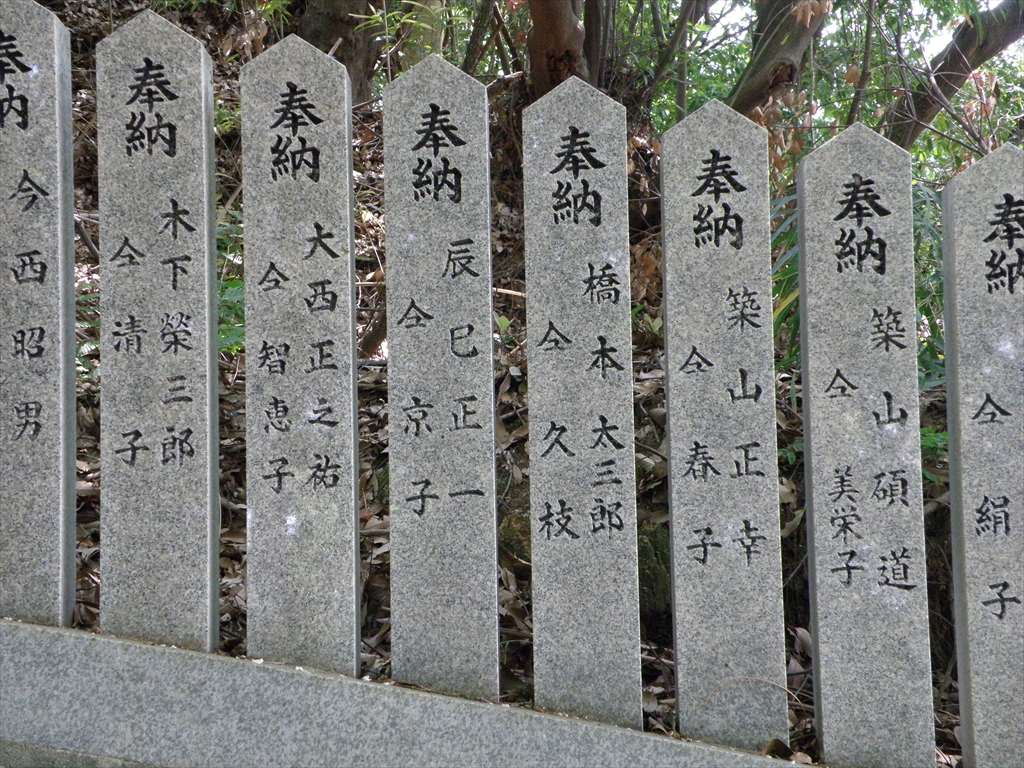 奉納
仝 絹子
奉納
築山碩道
仝 美栄子
奉納
築山正幸
仝 春子
奉納
橋本太三郎
仝 久枝
奉納
辰巳正一
仝 京子
奉納
大西正之祐
仝 智恵子
奉納
木下榮三郎
仝 清子
奉納
今西昭男